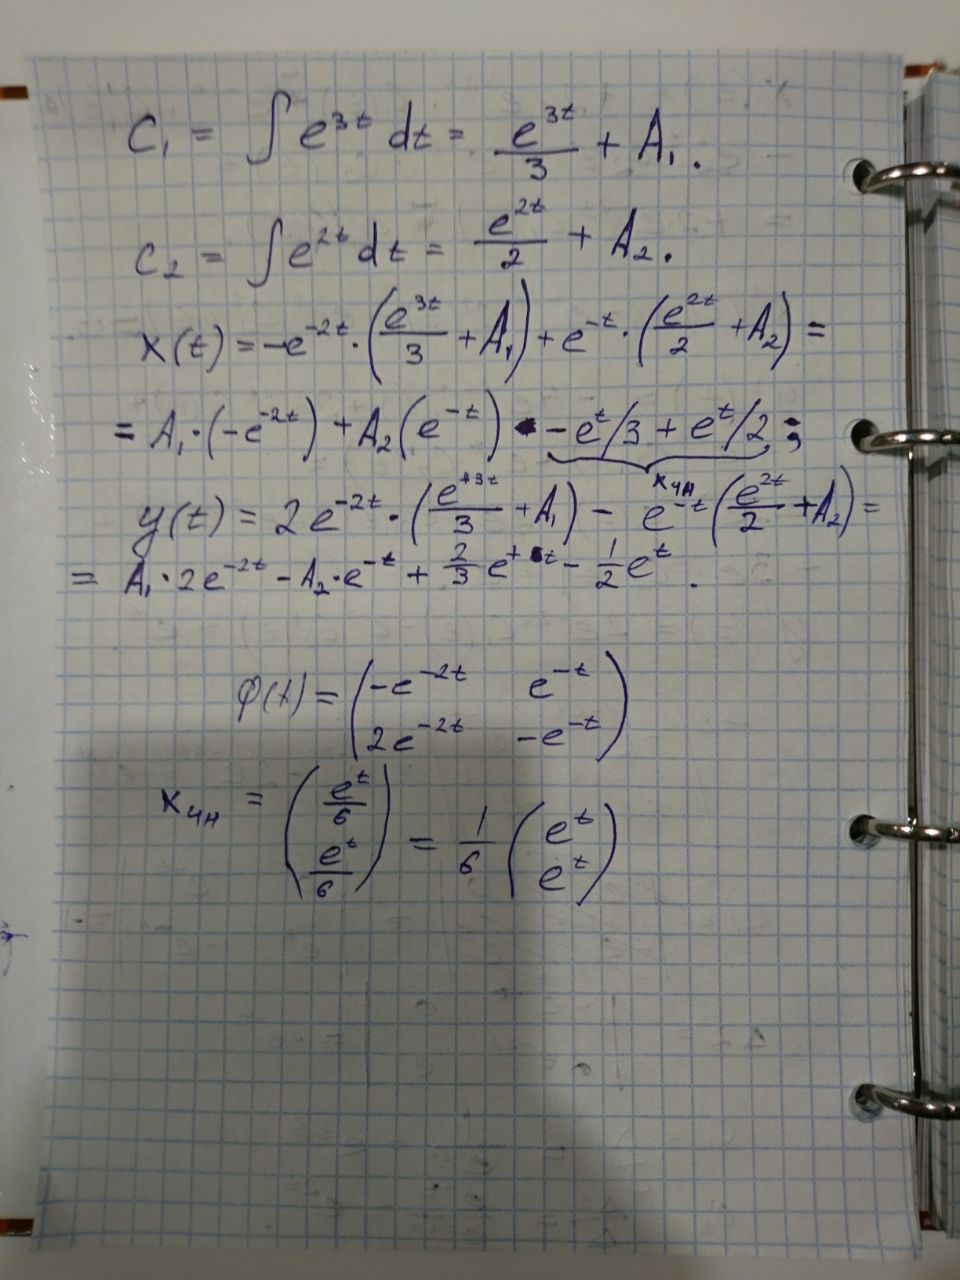 C₁ = ∫ e^{3t} dt = e^{3t}/3 + A₁.
C₂ = ∫ e^{2t} dt = e^{2t}/2 + A₂.
x(t) = -e^{-2t} · (e^{3t}/3 + A₁) + e^{-t} · (e^{2t}/2 + A₂) =
= A₁·(-e^{-2t}) + A₂(e^{-t}) - e^t/3 + e^t/2 ;
xчн
y(t) = 2e^{-2t} · (e^{+3t}/3 + A₁) - e^{-t}(e^{2t}/2 + A₂) =
= A₁·2e^{-2t} - A₂·e^{-t} + 2/3 e^{+t} - 1/2 e^t .
φ(t) = ( -e^{-2t} e^{-t}
2e^{-2t} -e^{-t} )
xчн = ( e^t/6
e^t/6 ) = 1/6 ( e^t
e^t )